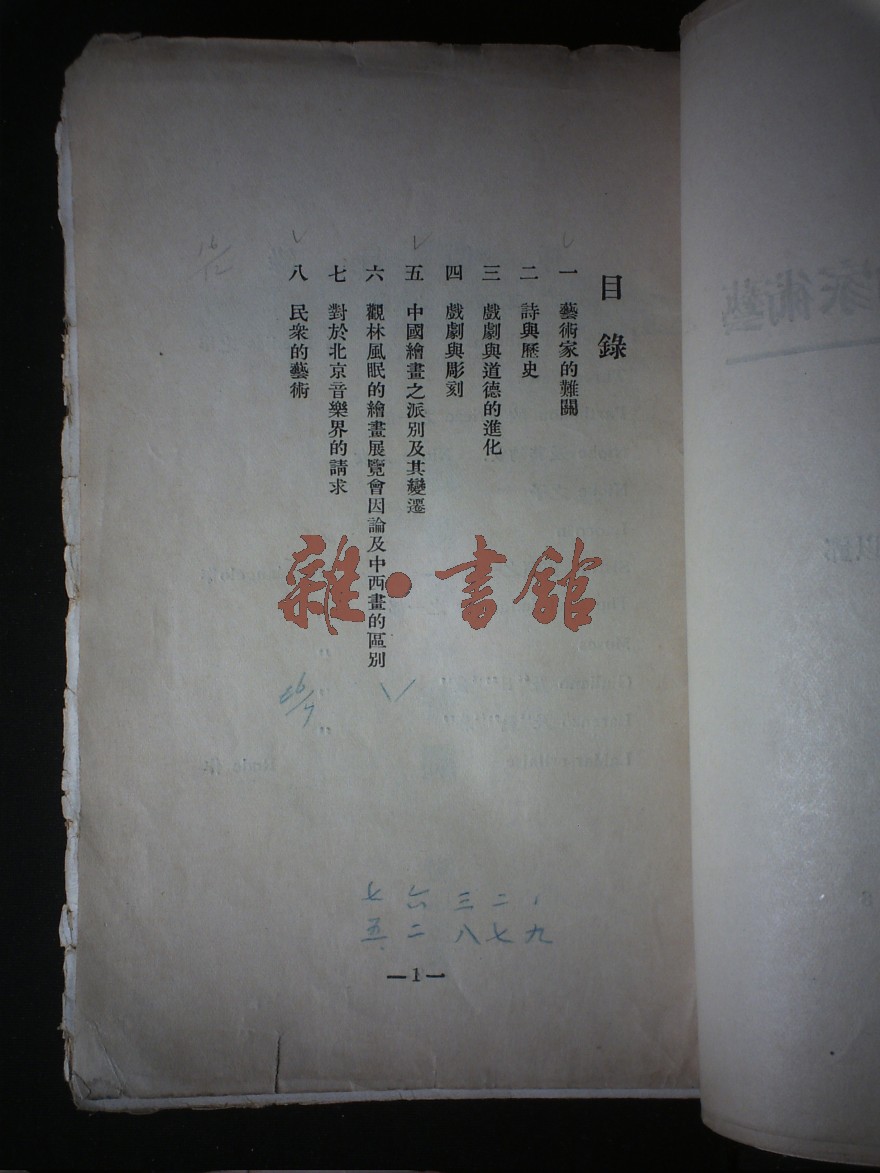 目錄
一 藝術家的難關
二 詩與歷史
三 戲劇與道德的進化
四 戲劇與彫刻
五 中國繪畫之派別及其變遷
六 觀林風眠的繪畫展覽會因論及中西畫的區別
七 對於北京音樂界的請求
八 民衆的藝術
雜·書館
七六三二、
五二八七九
—1—